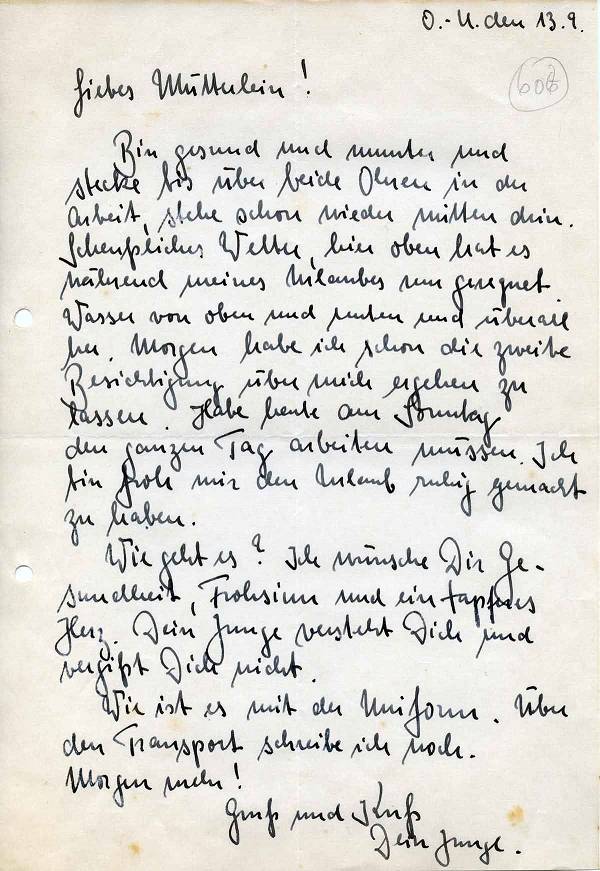 O.-U. den 13.9.
606
Liebes Mütterlein!
Bin gesund und munter und
stecke bis über beide Ohren in der
Arbeit, stehe schon wieder mitten drin.
Scheußliches Wetter, hier oben hat es
während meines Urlaubes nur geregnet.
Wasser von oben und unten und überall
her. Morgen habe ich schon die zweite
Besichtigung über mich ergehen zu
lassen. Habe heute am Sonntag
den ganzen Tag arbeiten müssen. Ich
bin froh mir den Urlaub ruhig gemacht
zu haben.
Wie geht es? Ich wünsche Dir Ge-
sundheit, Frohsinn und ein tapferes
Herz. Dein Junge versteht Dich und
vergißt Dich nicht.
Wie ist es mit der Uniform. Über
den Transport schreibe ich noch.
Morgen mehr!
Gruß und Kuß
Dein Junge.